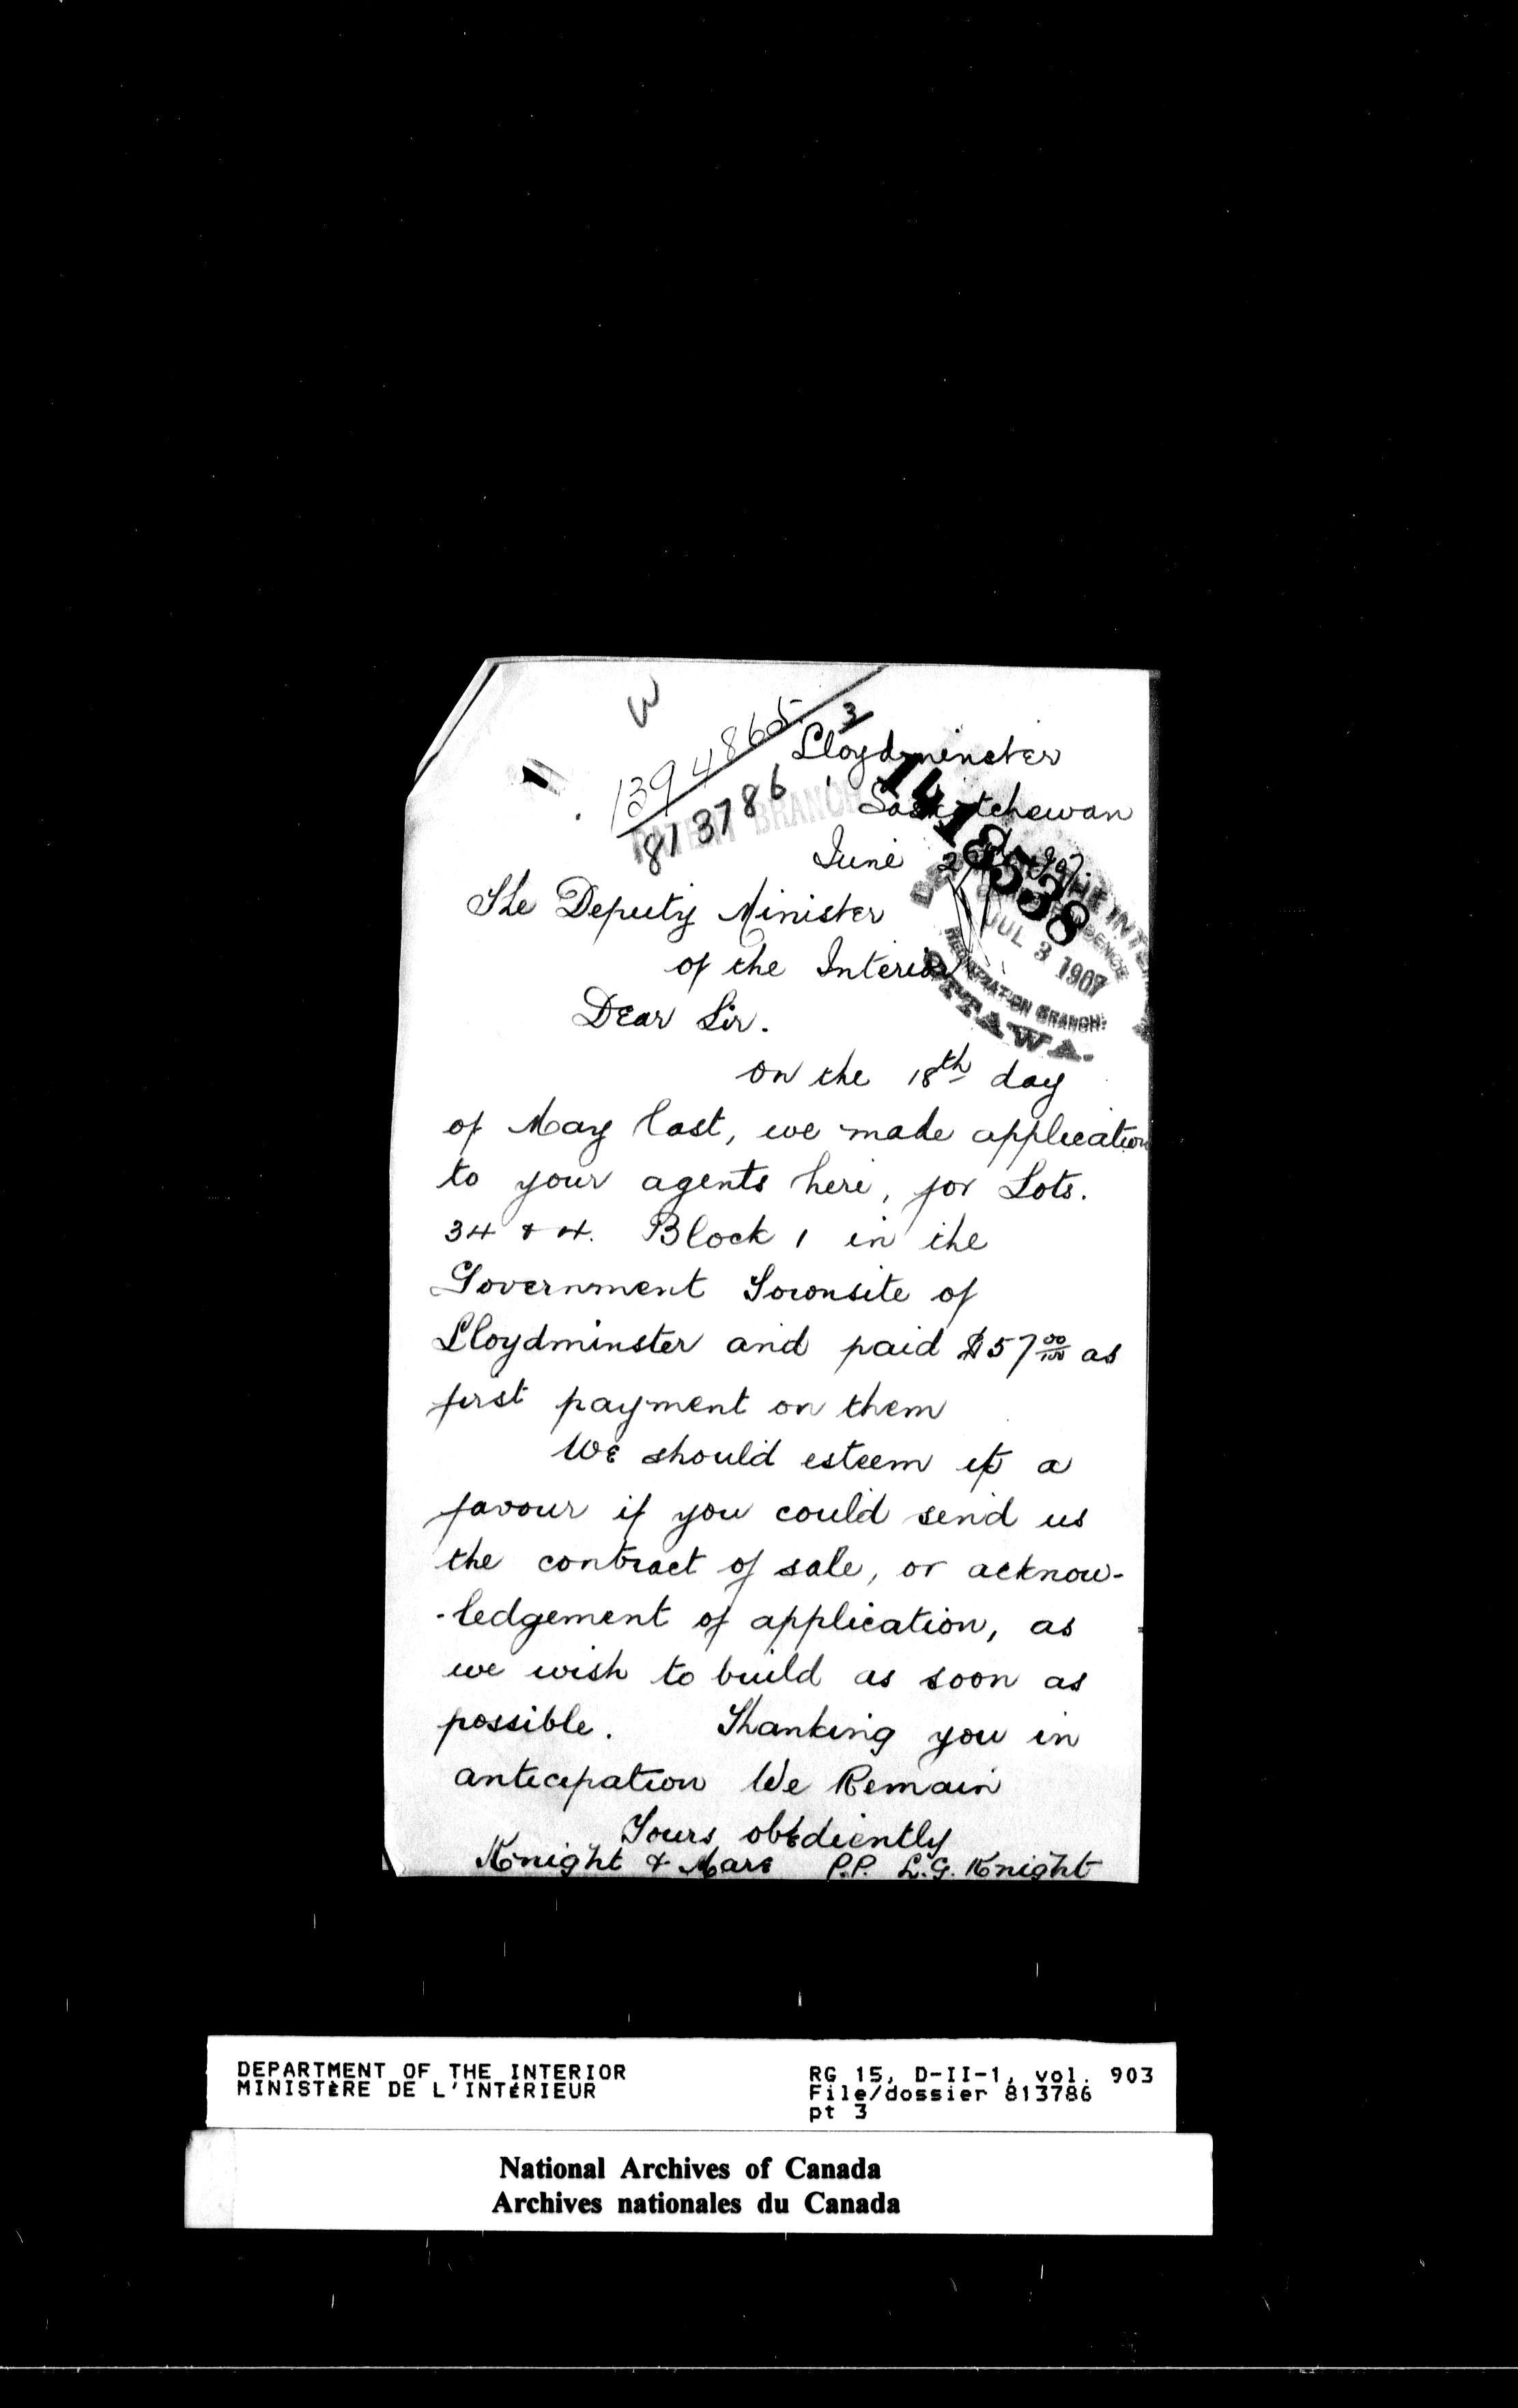 W
1394865
3
Lloydminster
1418538
813786
PATENT BRANCH
Saskatchewan
June
THE INTE
JUL 3 1907
REGISTRATION BRANCH
OTTAWA.
The Deputy Minister
of the Interior
Dear Sir.
On the 18th day
of May last, we made application
to your agents here, for Lots.
34 & 4. Block 1 in the
Government Townsite of
Lloydminster and paid $57 00/100 as
first payment on them
We should esteem it a
favour if you could send us
the contract of sale, or acknow-
-ledgement of application, as
we wish to build as soon as
possible. Thanking you in
anticipation We Remain
Yours obediently
Knight & Mars P.P. L.G. Knight
DEPARTMENT OF THE INTERIOR
MINISTÈRE DE L'INTÉRIEUR
RG 15, D-II-1, vol. 903
File/dossier 813786
pt 3
National Archives of Canada
Archives nationales du Canada